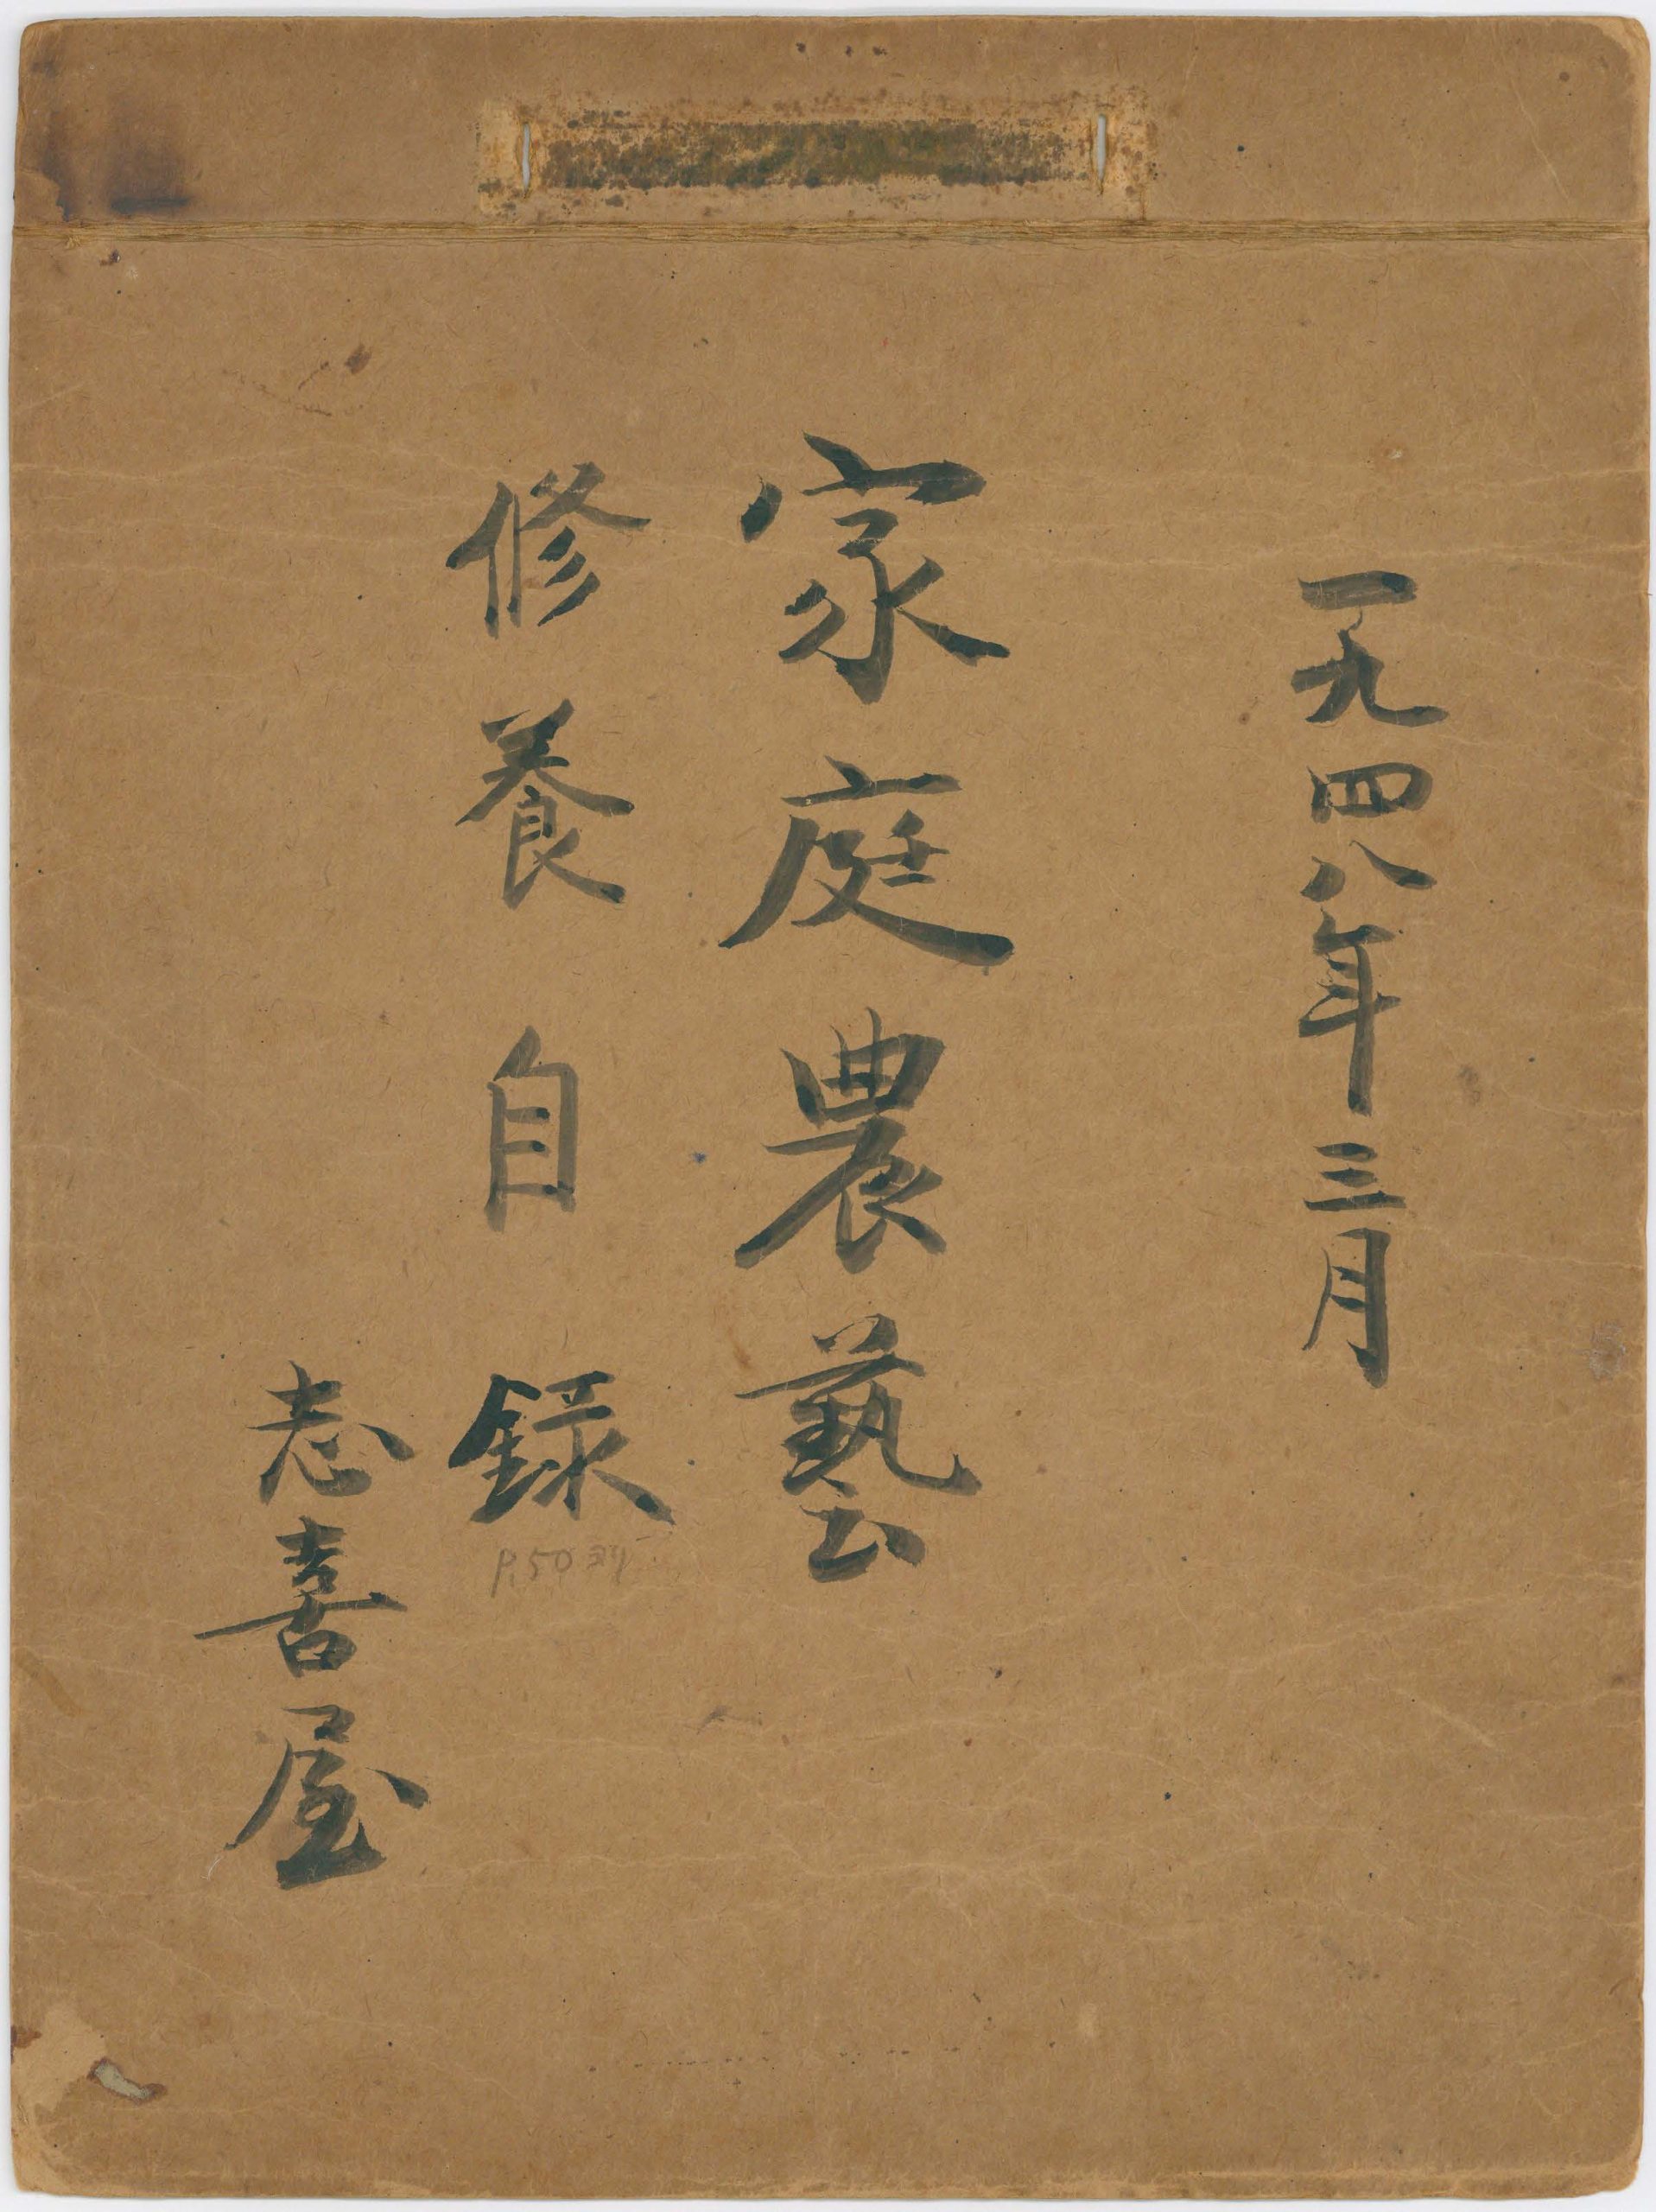 一九四八年三月
家庭農藝
修養自録
P.50ヨリ
志喜屋